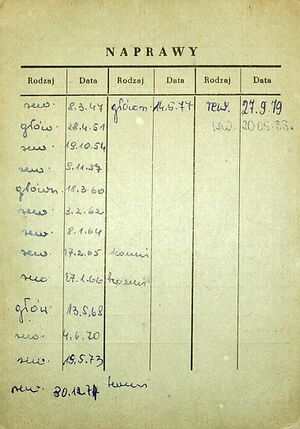 NAPRAWY
Rodzaj Data Rodzaj Data Rodzaj Data
rew. 8.3.47 główn. 14.5.77 rew. 27.9.79
głów. 28.4.51 rew. 20.05.83.
rew. 19.10.54
rew. 9.11.57
główn. 18.3.60
rew. 3.2.62
rew. 8.1.64
rew. 17.2.65 komis
rew. 27.1.66 komis
głów. 13.5.68
rew. 4.6.70
rew. 19.5.73
rew. 30.12.74 komis